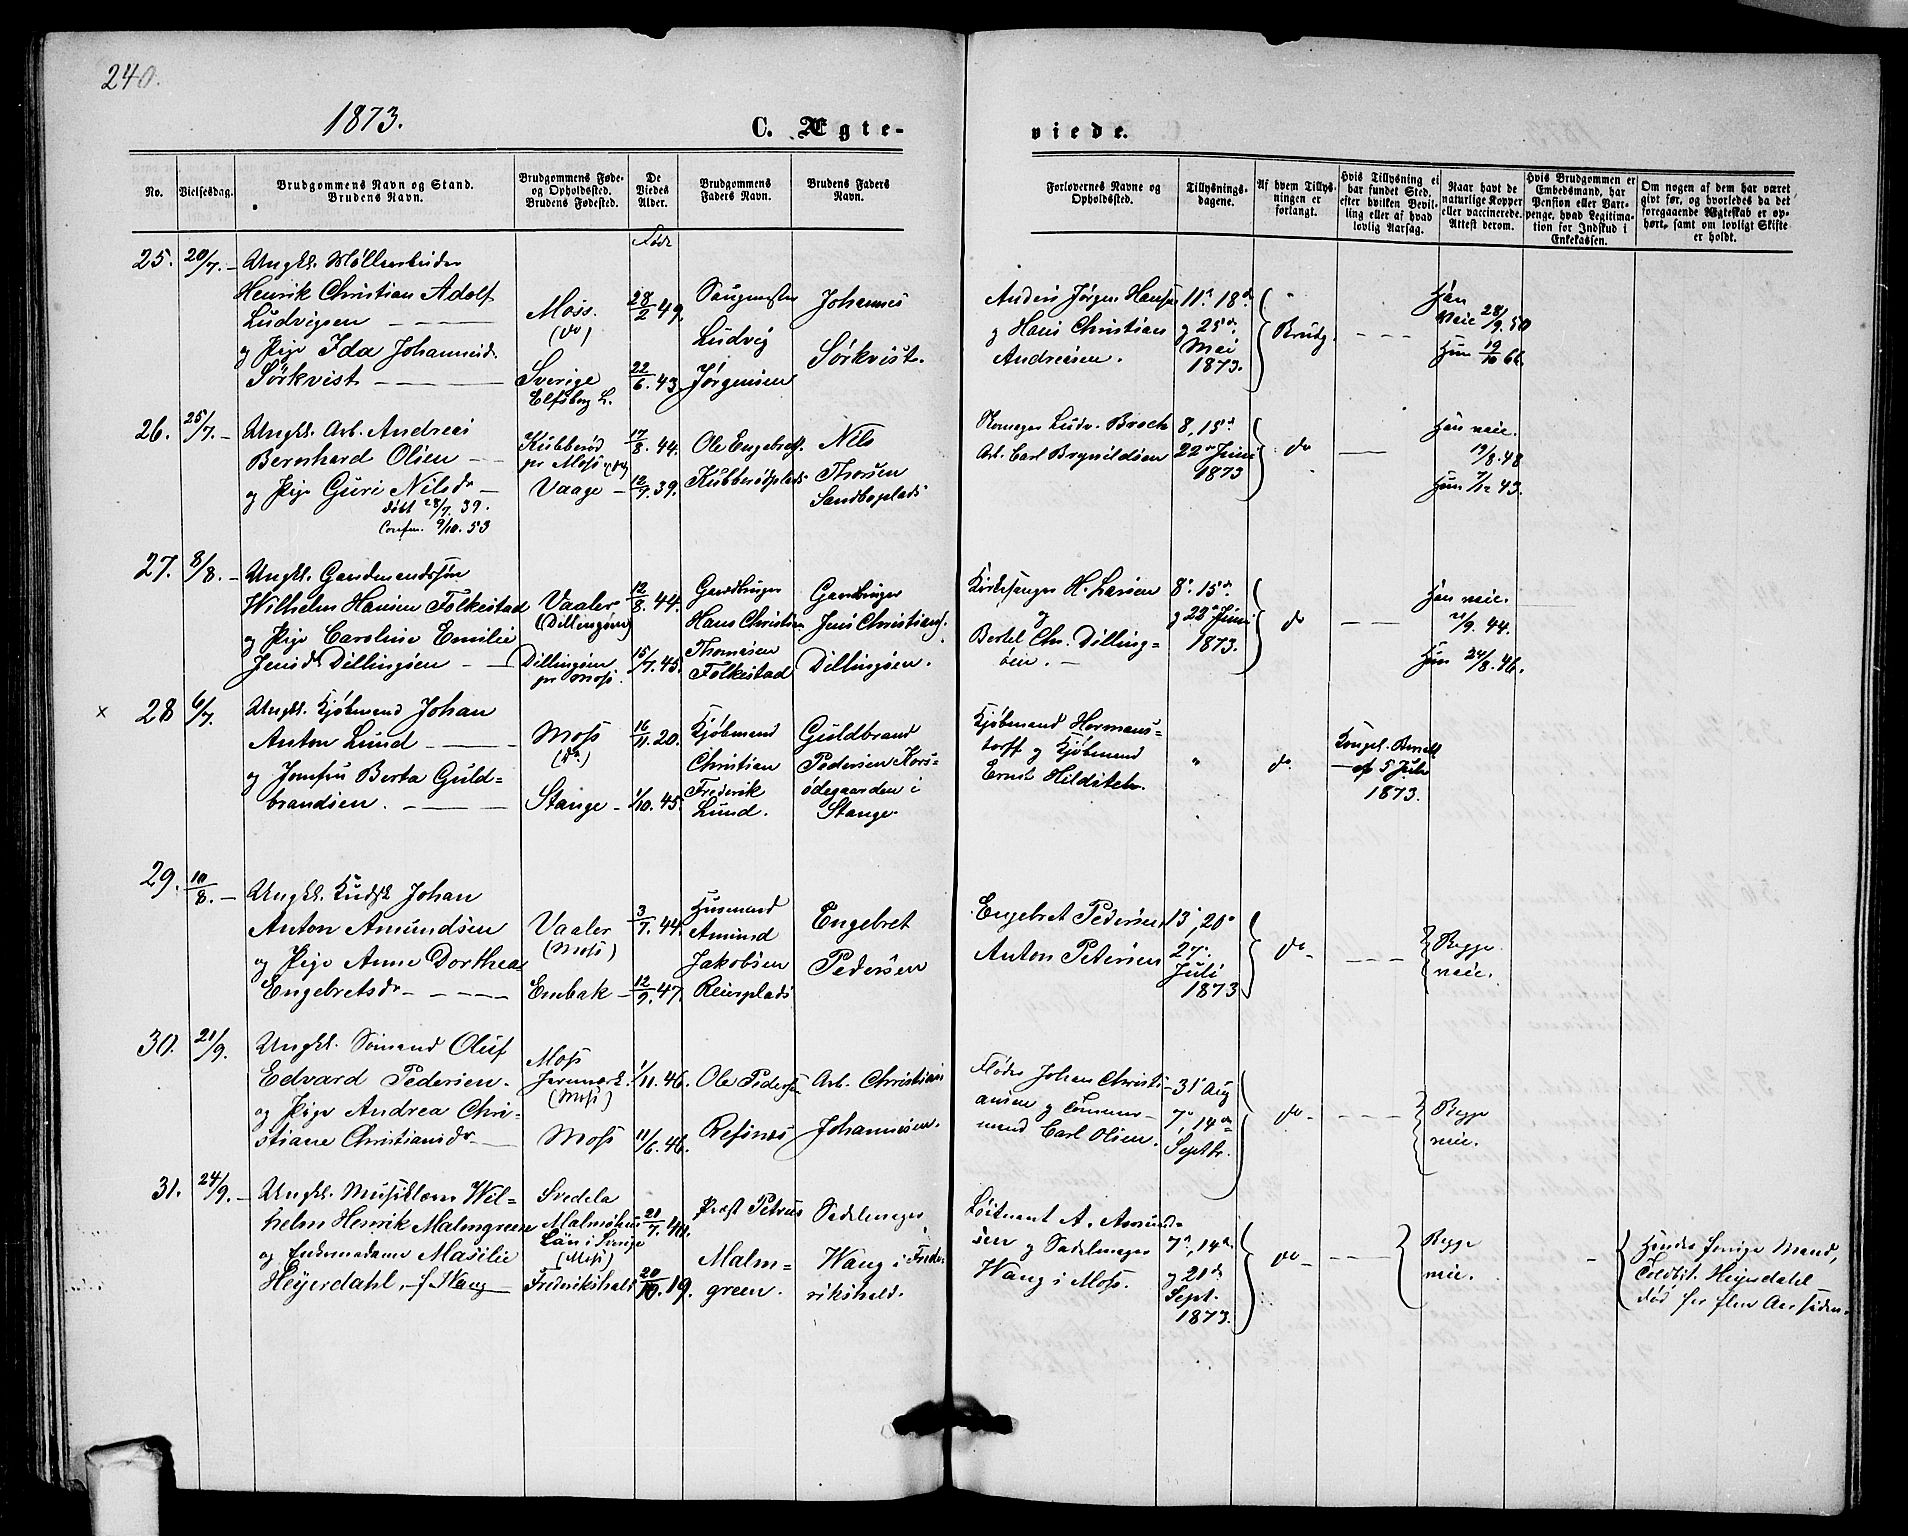 240.
1873.
C. Ægte-
viede.
No.
Vielsesdag.
Brudgommens Navn og Stand.
Brudens Navn.
Brudgommens Føde-
og Opholdssted.
Brudens Fødested.
De
Viedes
Alder.
Brudgommens
Faders Navn.
Brudens Faders
Navn.
Forlovernes Navne og
Opholdssted.
Tillysnings-
dagene.
Af hvem Tillys-
ningen er
forlangt.
Hvis Tillysning ei
har fundet Sted,
efter hvilken Bevil-
ling eller af hvad
lovlig Aarsag.
Naar havt de
naturlige Kopper
eller vaccinerede.
Attest derom.
Hvis Brudgommen er
Embedsmand, har
Pension eller Vart-
penge, hvad Legitima-
tion for Indskud i
Enkekassen.
Om nogen af dem har været
givt før, og hvorledes da det
foregaaende Ægteskab er op-
hørt, samt om lovligt Skifte
er holdt.
Født
25. 20/7. Ungk.
Henrik Christian Adolf
Ludvigsen
og Pige Ida Johannesdr
Sörkvist
Moss.
(do)
Sverige
Elfsborg L.
28/2 49.
22/6. 43.
Ludvig
Jørgensen
Johannes
Sörkvist.
Anders Jørgen Hansen
og Hans Christian
Andresen.
11te 18de
og 25de
Mai
1873.
Brudg.
Han
vacc 28/9. 50
Hun 19/10 66.
26. 25/7. Ungk. Arb. Andreas
Bernhard Olsen
og Pige Guri Nilsdr
døbt 28/7. 39.
Confirm. 9/10. 53
Kubberød
pr Moss (do)
Vaage
17/8. 44.
12/7. 39.
Ole Engebrets.
Kubberødplads
Nils
Thorsen
Sandboplads
Ludv. Broch
Arb. Carl Brynildsen
8, 15de
22de Juni
1873
do
Han vacc.
19/8. 48
Hun 7/12 43.
27. 8/8. Ungk. Gaardmandssøn
Wilhelm Hansen Folkestad
og Pige Caroline Emilie
Jensdr Dillingøen
Vaaler
(Dillingøen)
Dillingøen
pr Moss.
12/8. 44.
15/7. 45.
Gaardbruger
Hans Christian
Thomesen
Folkestad
Gaardbruger
Jens Christians.
Dillingøen.
Kirkesanger H. Larsen
og
Bertel Chr. Dilling-
øen.
8de 15de
og 22de Juni
1873.
do
Han vacc.
21/9. 44.
Hun 24/8. 46.
x 28 6/7. Ungk. Kjøbmand Johan
Anton Lund
og Jomfru Berta Guld-
brandsen.
Moss
(do)
Stange
16/11. 20.
1/10. 45.
Kjøbmand
Christian
Frederik
Lund.
Guldbrand
Pedersen Kors-
ødegaarden i
Stange.
Kjøbmand Hermans-
torff og Kjøbmand
Ernst Hilditch.
"
do
Kongel. Bevill.
af 5 Juli
1873.
29. 10/8. Ungk. Kudsk Johan
Anton Amundsen
og Pige Anne Dorthea
Engebretsdr
Vaaler
(Moss)
Enebak
3/7. 44.
12/9. 47.
Husmand
Amund
Jakobsen
Reierplads
Engebret
Pedersen
Engebret Pedersen
Anton Petersen
13, 20de
27de
Juli
1873
do
Begge
vacc.
30. 21/9. Ungk. Sømand Oluf
Edvard Pedersen.
og Pige Andrea Chri-
stiane Christiansdr
Moss
(Moss)
Moss
1/11. 46.
11/6. 46.
Ole Pedersen
Refsnes
Arb. Christian
Johannesen.
Fløder Johan Christi-
ansen og Tømmer-
mand Carl Olsen.
31te Aug
7de, 14de
Septbr.
do
Begge
vacc.
31. 24/9. Ungk. Musiklærer Wil-
helm Henrik Malmgreen
og Enkemadame Masilie
Heyerdahl, f. Wang
Svedela
Malmøhus
Län i Sverige
(Moss)
Fredrikshald
21/7. 40.
20/10. 19.
Præst Petrus
Malm-
green.
Sadelmager
Wang i Frede-
rikshald.
Løitnant A. Amund-
sen og Sadelmager
Wang i Moss.
7de, 14de
og 21de
Sept.
1873.
do
Begge
vacc.
Hendes forrige Mand,
Toldbet. Heyerdahl
død for flere Aar siden.